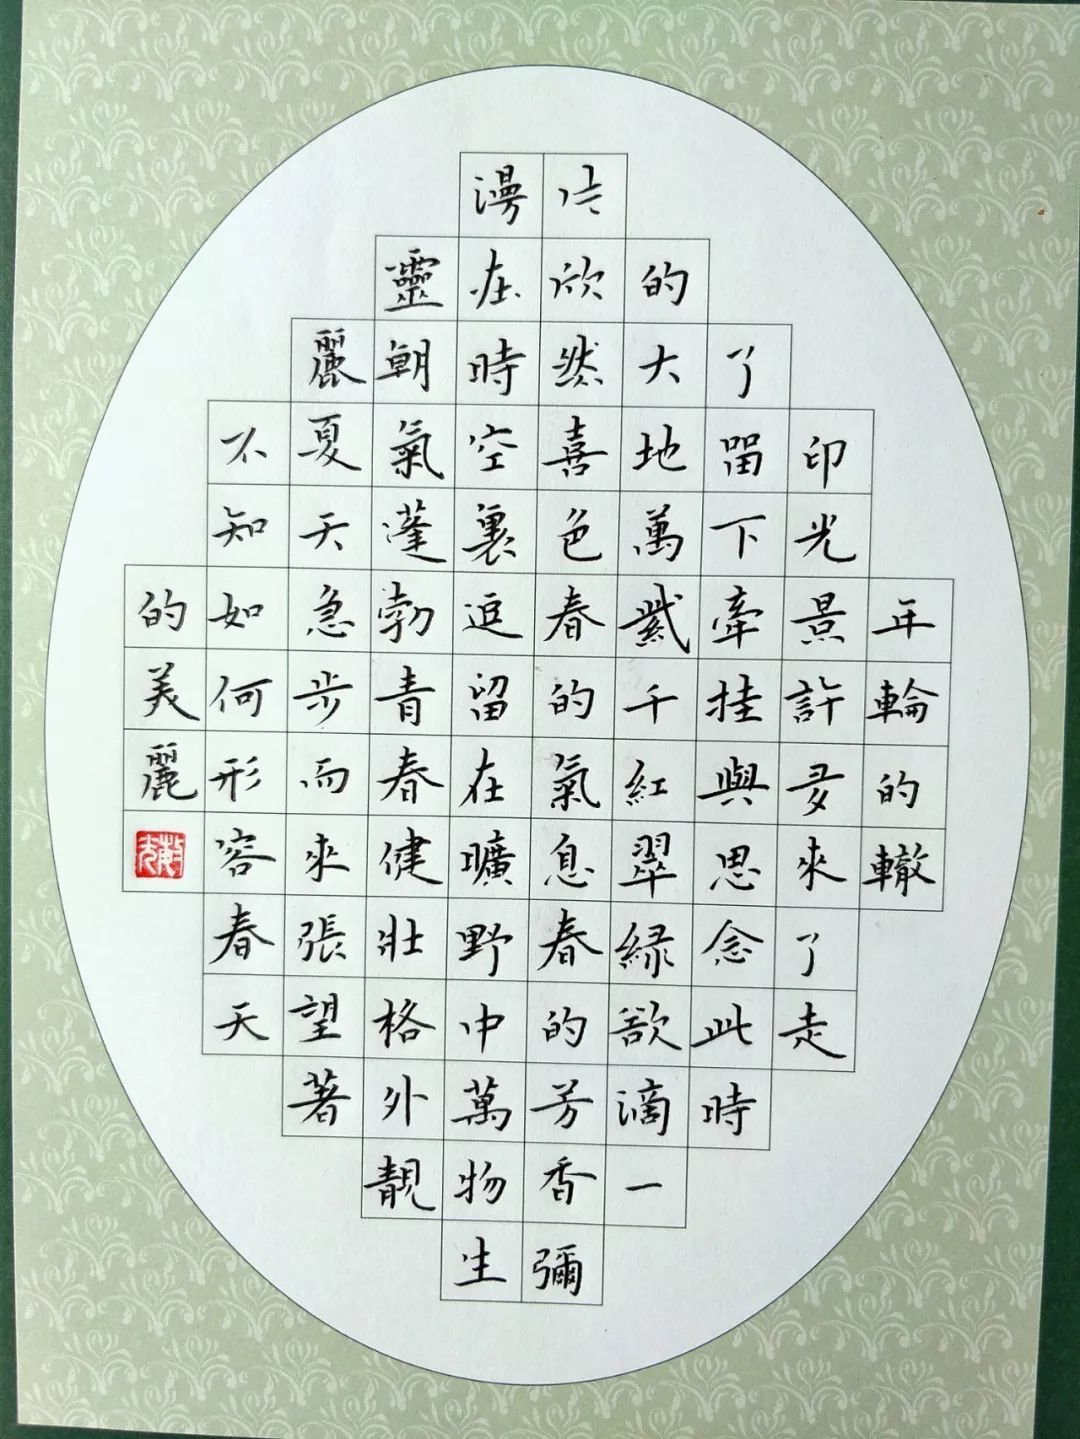 年輪的轍
印光景許多來了走
了畱下牽挂與思念此時
的大地萬紫千紅翠緑欲滴一
片欣然喜色春的氣息春的芳香彌
漫在時空裏逗留在曠野中萬物生
靈朝氣蓬勃青春健壯格外靚
麗夏天急步而來張望著
不知如何形容春天
的美麗